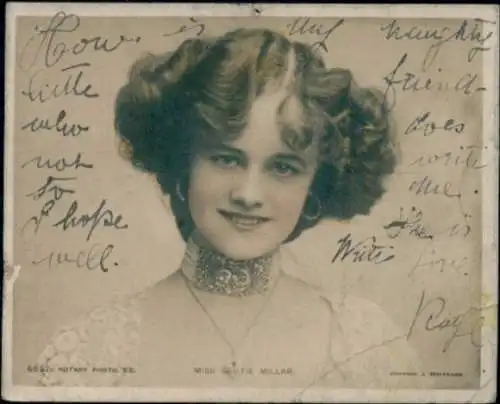 How is my naughty
little friend
who does
not write
to me.
I hope She is
well. Write
Ray
ROTARY PHOTO. EC. MISS GERTIE MILLAR.